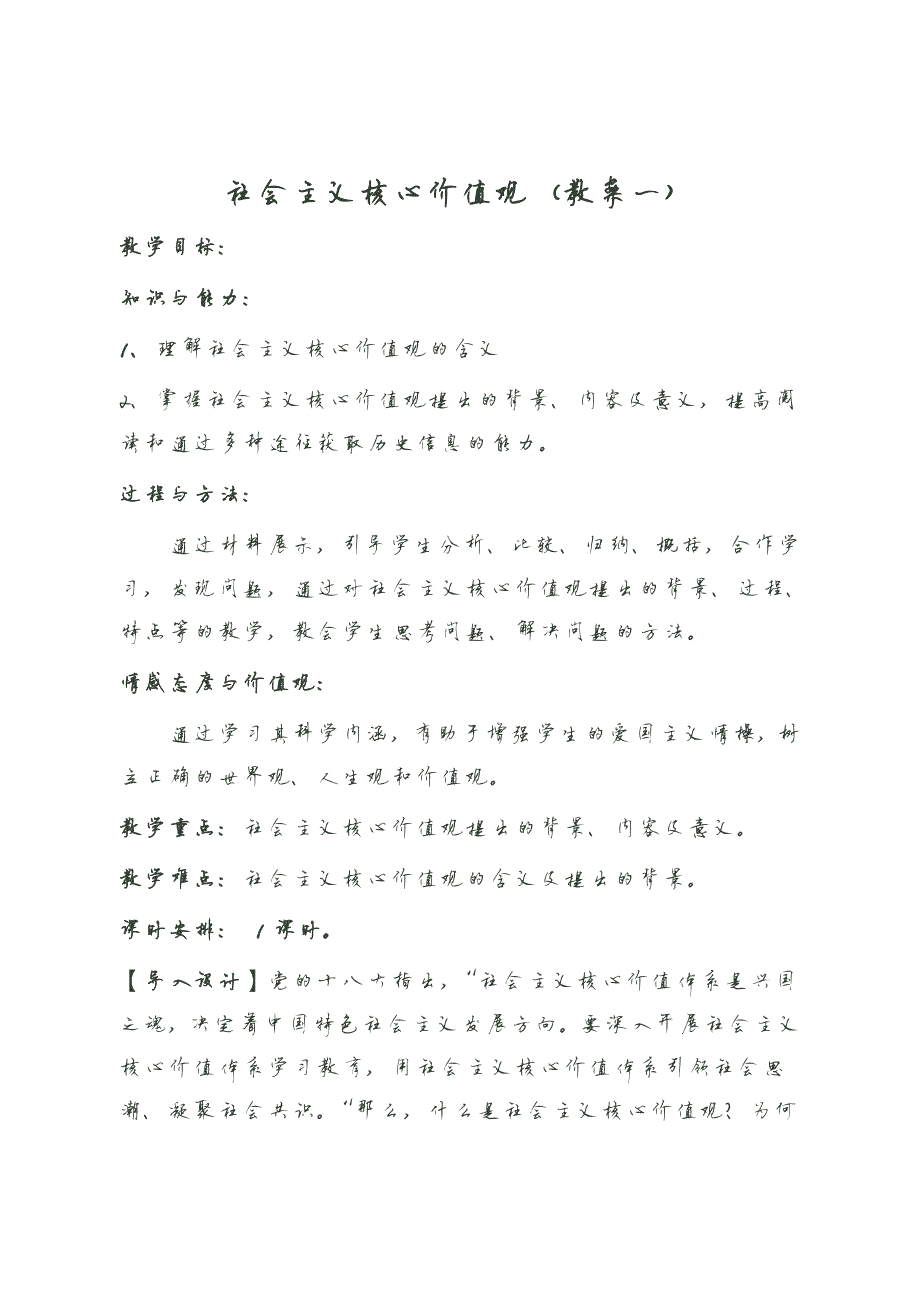 社会主义核心价值观（教案一）
教学目标：
知识与能力：
1、理解社会主义核心价值观的含义
2、掌握社会主义核心价值观提出的背景、内容及意义，提高阅
读和通过多种途径获取历史信息的能力。
过程与方法：
通过材料展示，引导学生分析、比较、归纳、概括，合作学
习，发现问题，通过对社会主义核心价值观提出的背景、过程、
特点等的教学，教会学生思考问题、解决问题的方法。
情感态度与价值观：
通过学习其科学内涵，有助于增强学生的爱国主义情操，树
立正确的世界观、人生观和价值观。
教学重点：社会主义核心价值观提出的背景、内容及意义。
教学难点：社会主义核心价值观的含义及提出的背景。
课时安排： 1课时。
【导入设计】党的十八大指出，“社会主义核心价值体系是兴国
之魂，决定着中国特色社会主义发展方向。要深入开展社会主义
核心价值体系学习教育，用社会主义核心价值体系引领社会思
潮、凝聚社会共识。“那么，什么是社会主义核心价值观？为何